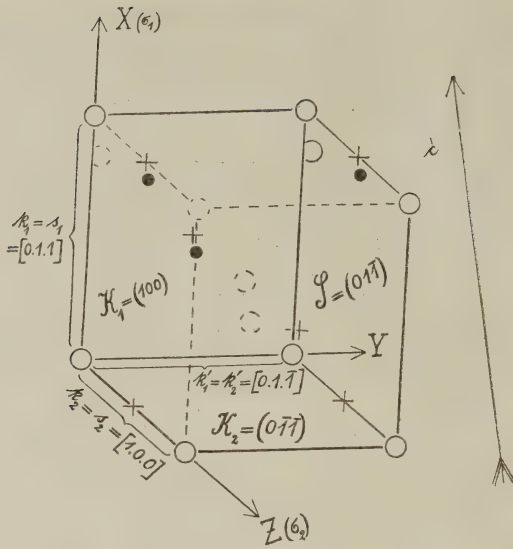 X(σ₁)
i
k₁ = s₁
= [0.1.1]
K₁ = (100)
S = (01̄1̄)
Y
k₁′ = k₂′ = [0.1.1̄]
k₂ = s₂ = [1.0.0]
K₂ = (01̄1̄)
Z(σ₂)